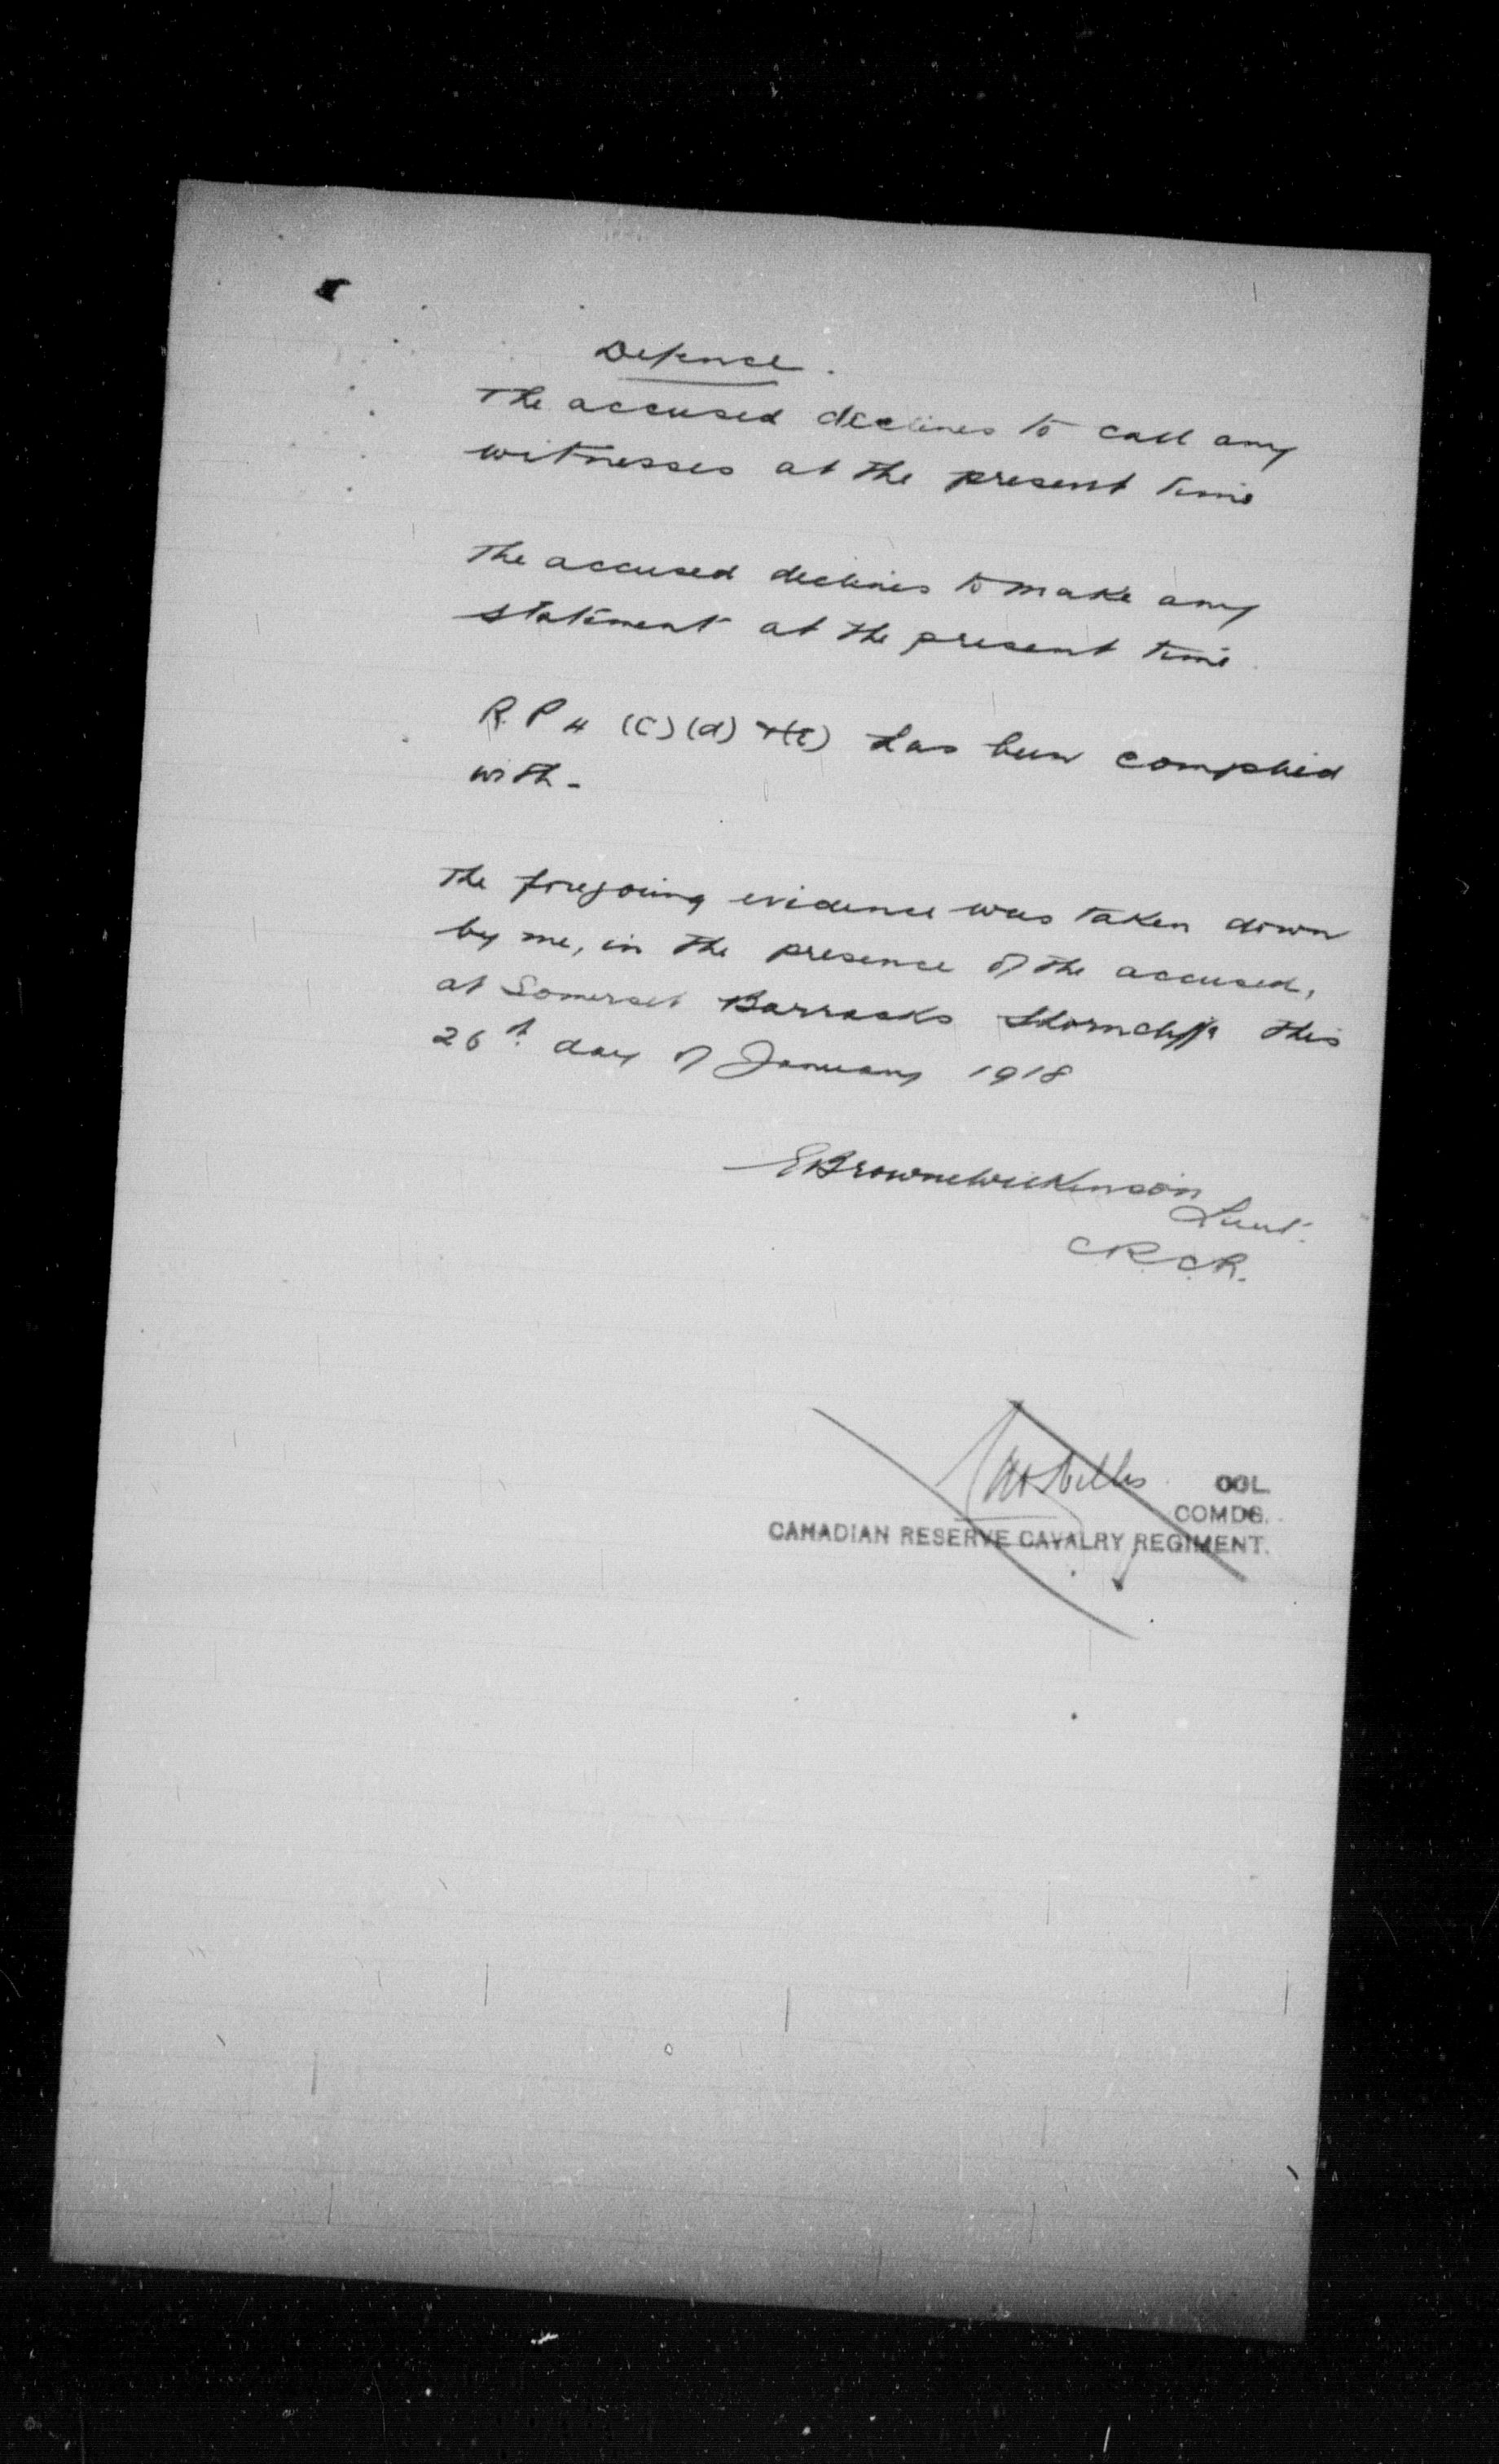 Defence.
The accused declines to call any
witnesses at the present time
The accused declines to make any
statement at the present time.
R.P 4 (C) (d) +(E) has been complied
with -
The foregoing evidence was taken down
by me, in the presence of the accused,
at Somerset Barracks Shorncliffe this
26th day of January 1918
EBrowneWilkinson
Lieut.
C.R.C.R.
COL.
COMDG.
CANADIAN RESERVE CAVALRY REGIMENT.